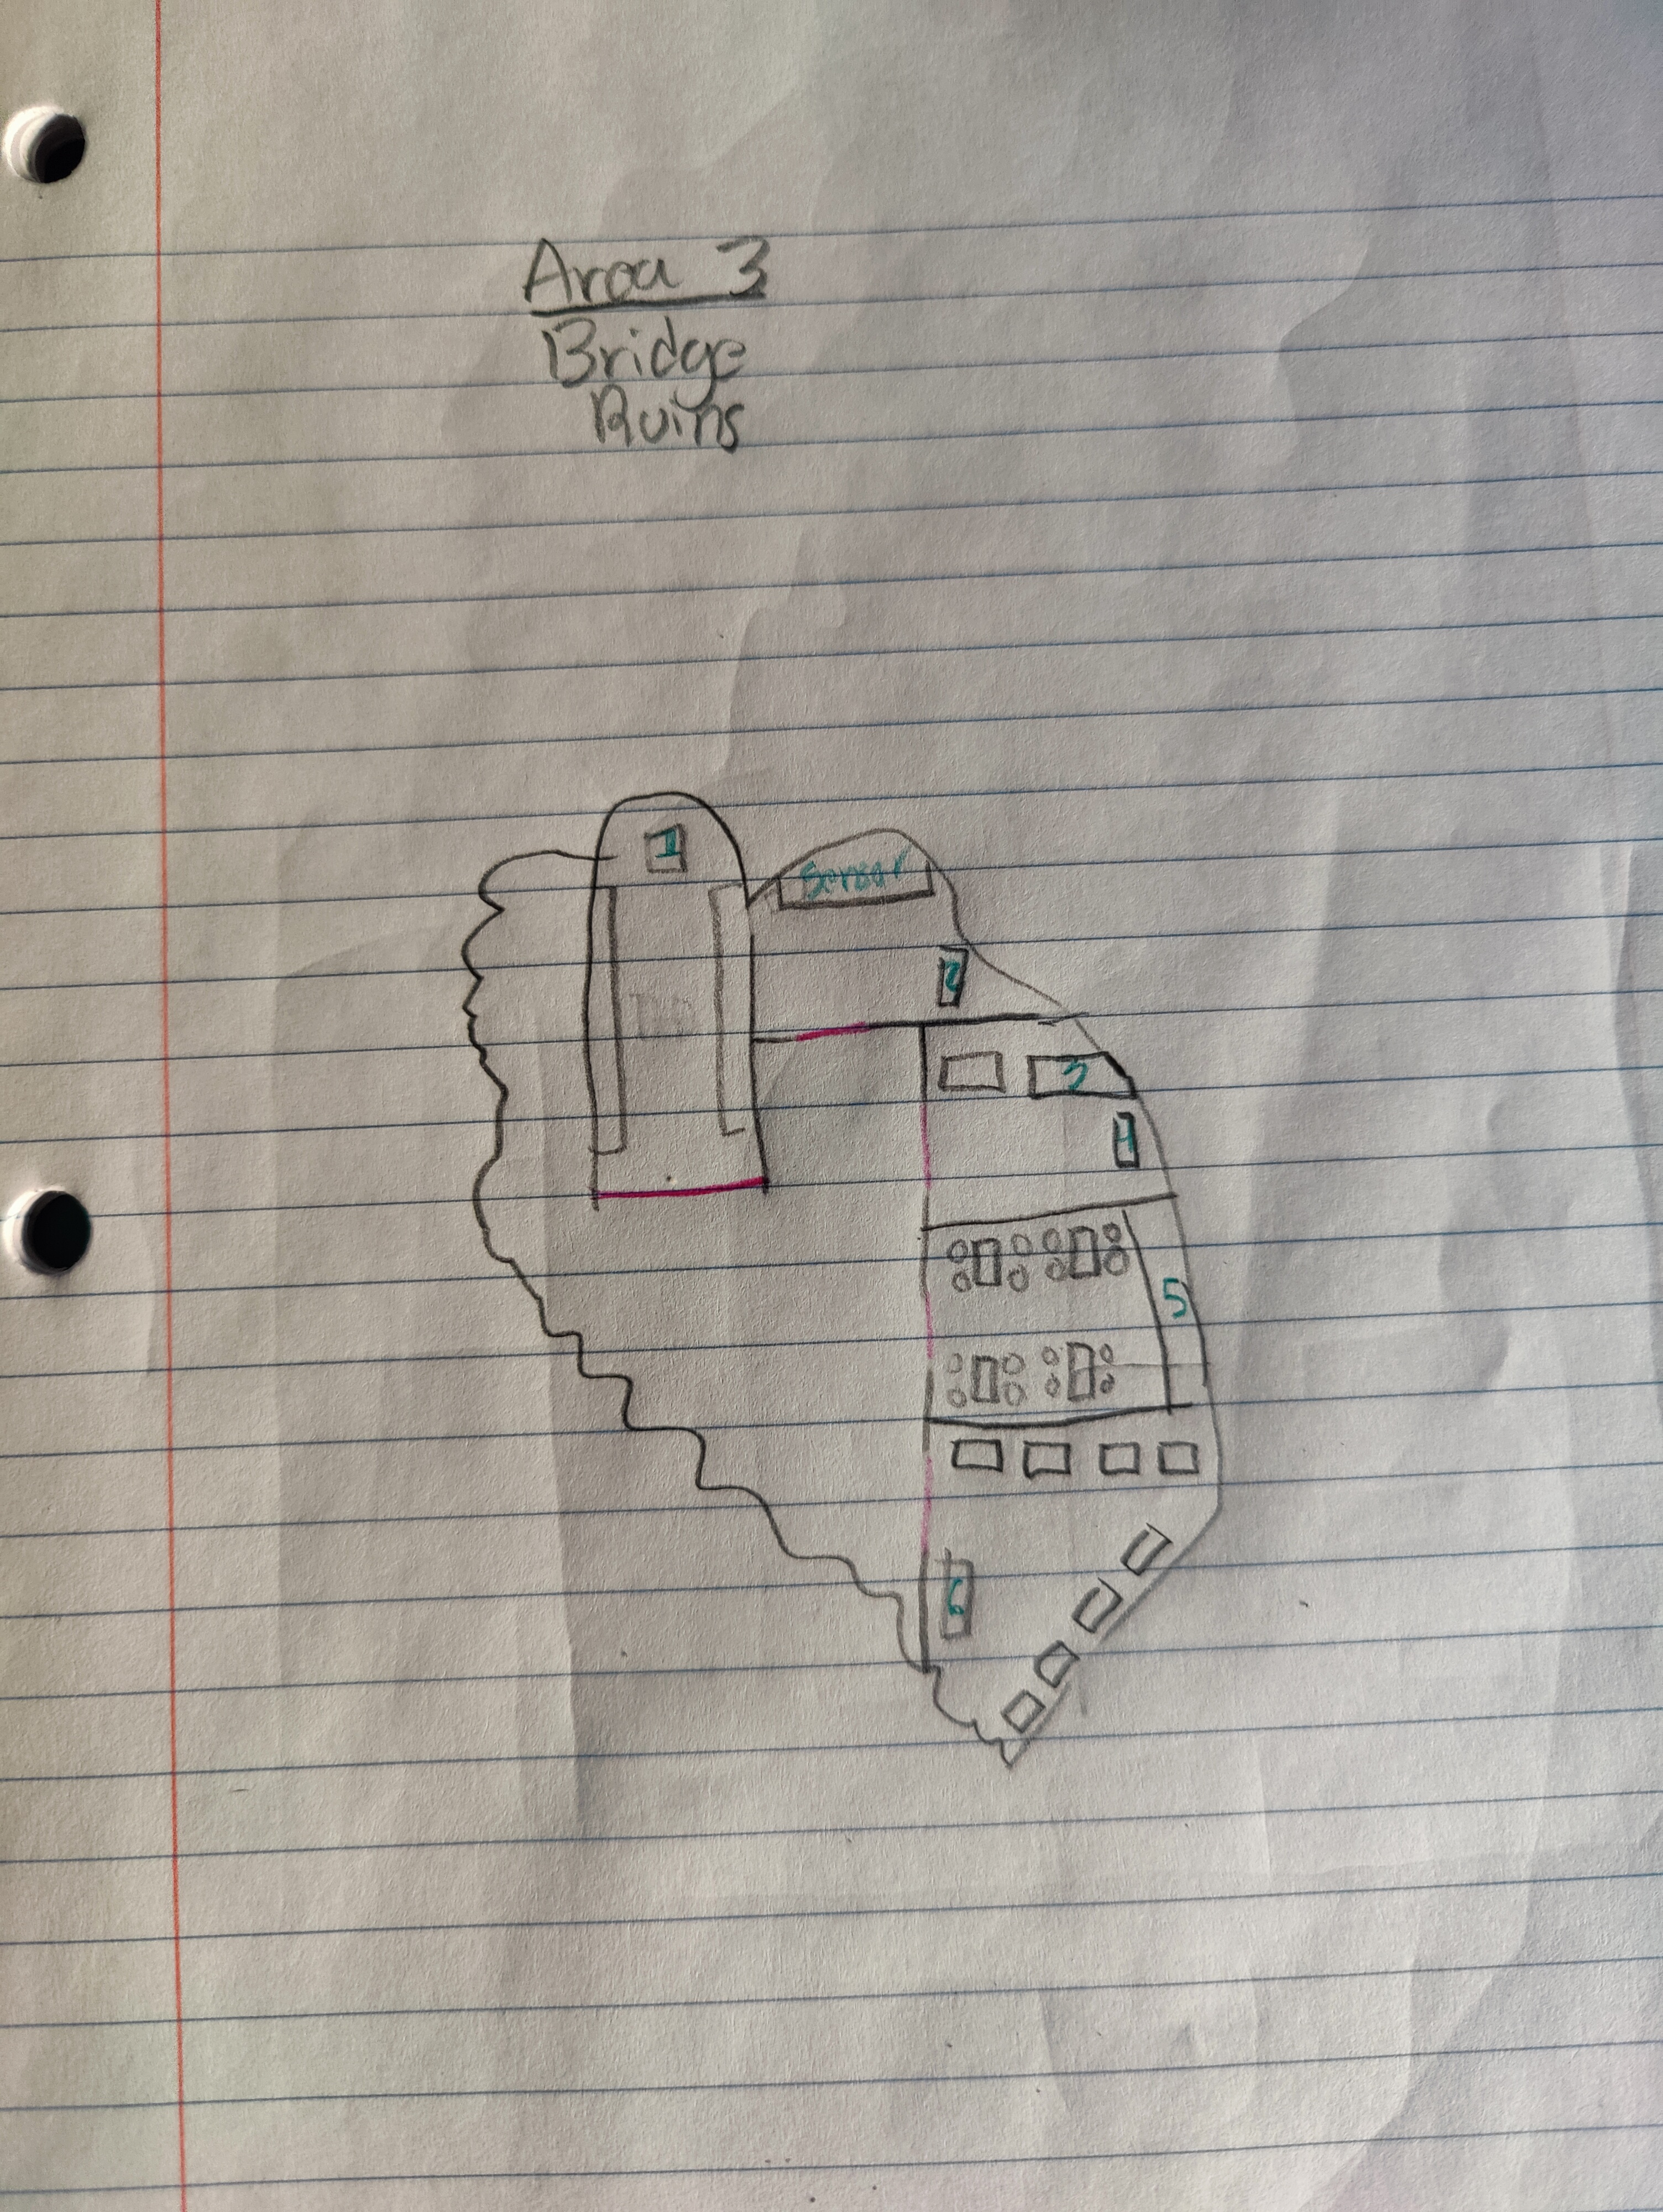 Area 3
Bridge
Ruins
1
Sensor
2
3
4
5
6